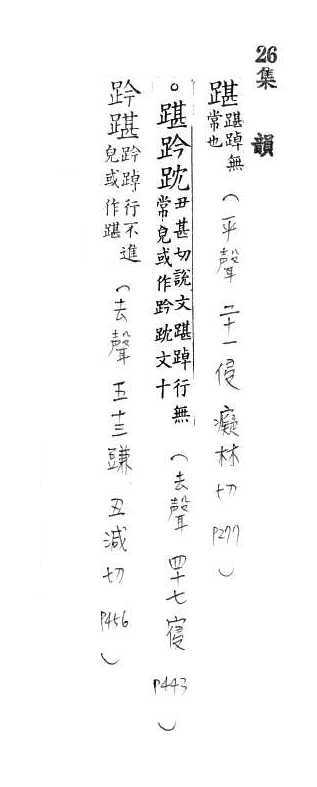 26集 韻
踸踸踔無常也（平聲 二十一侵 癡林切 P277）
。踸趻跈丑甚切說文踸踔行無常皃或作趻跈文十（去聲 四十七寑 P443）
趻踸趻踔行不進皃或作踸（去聲 五十三豏 丑減切 P456）